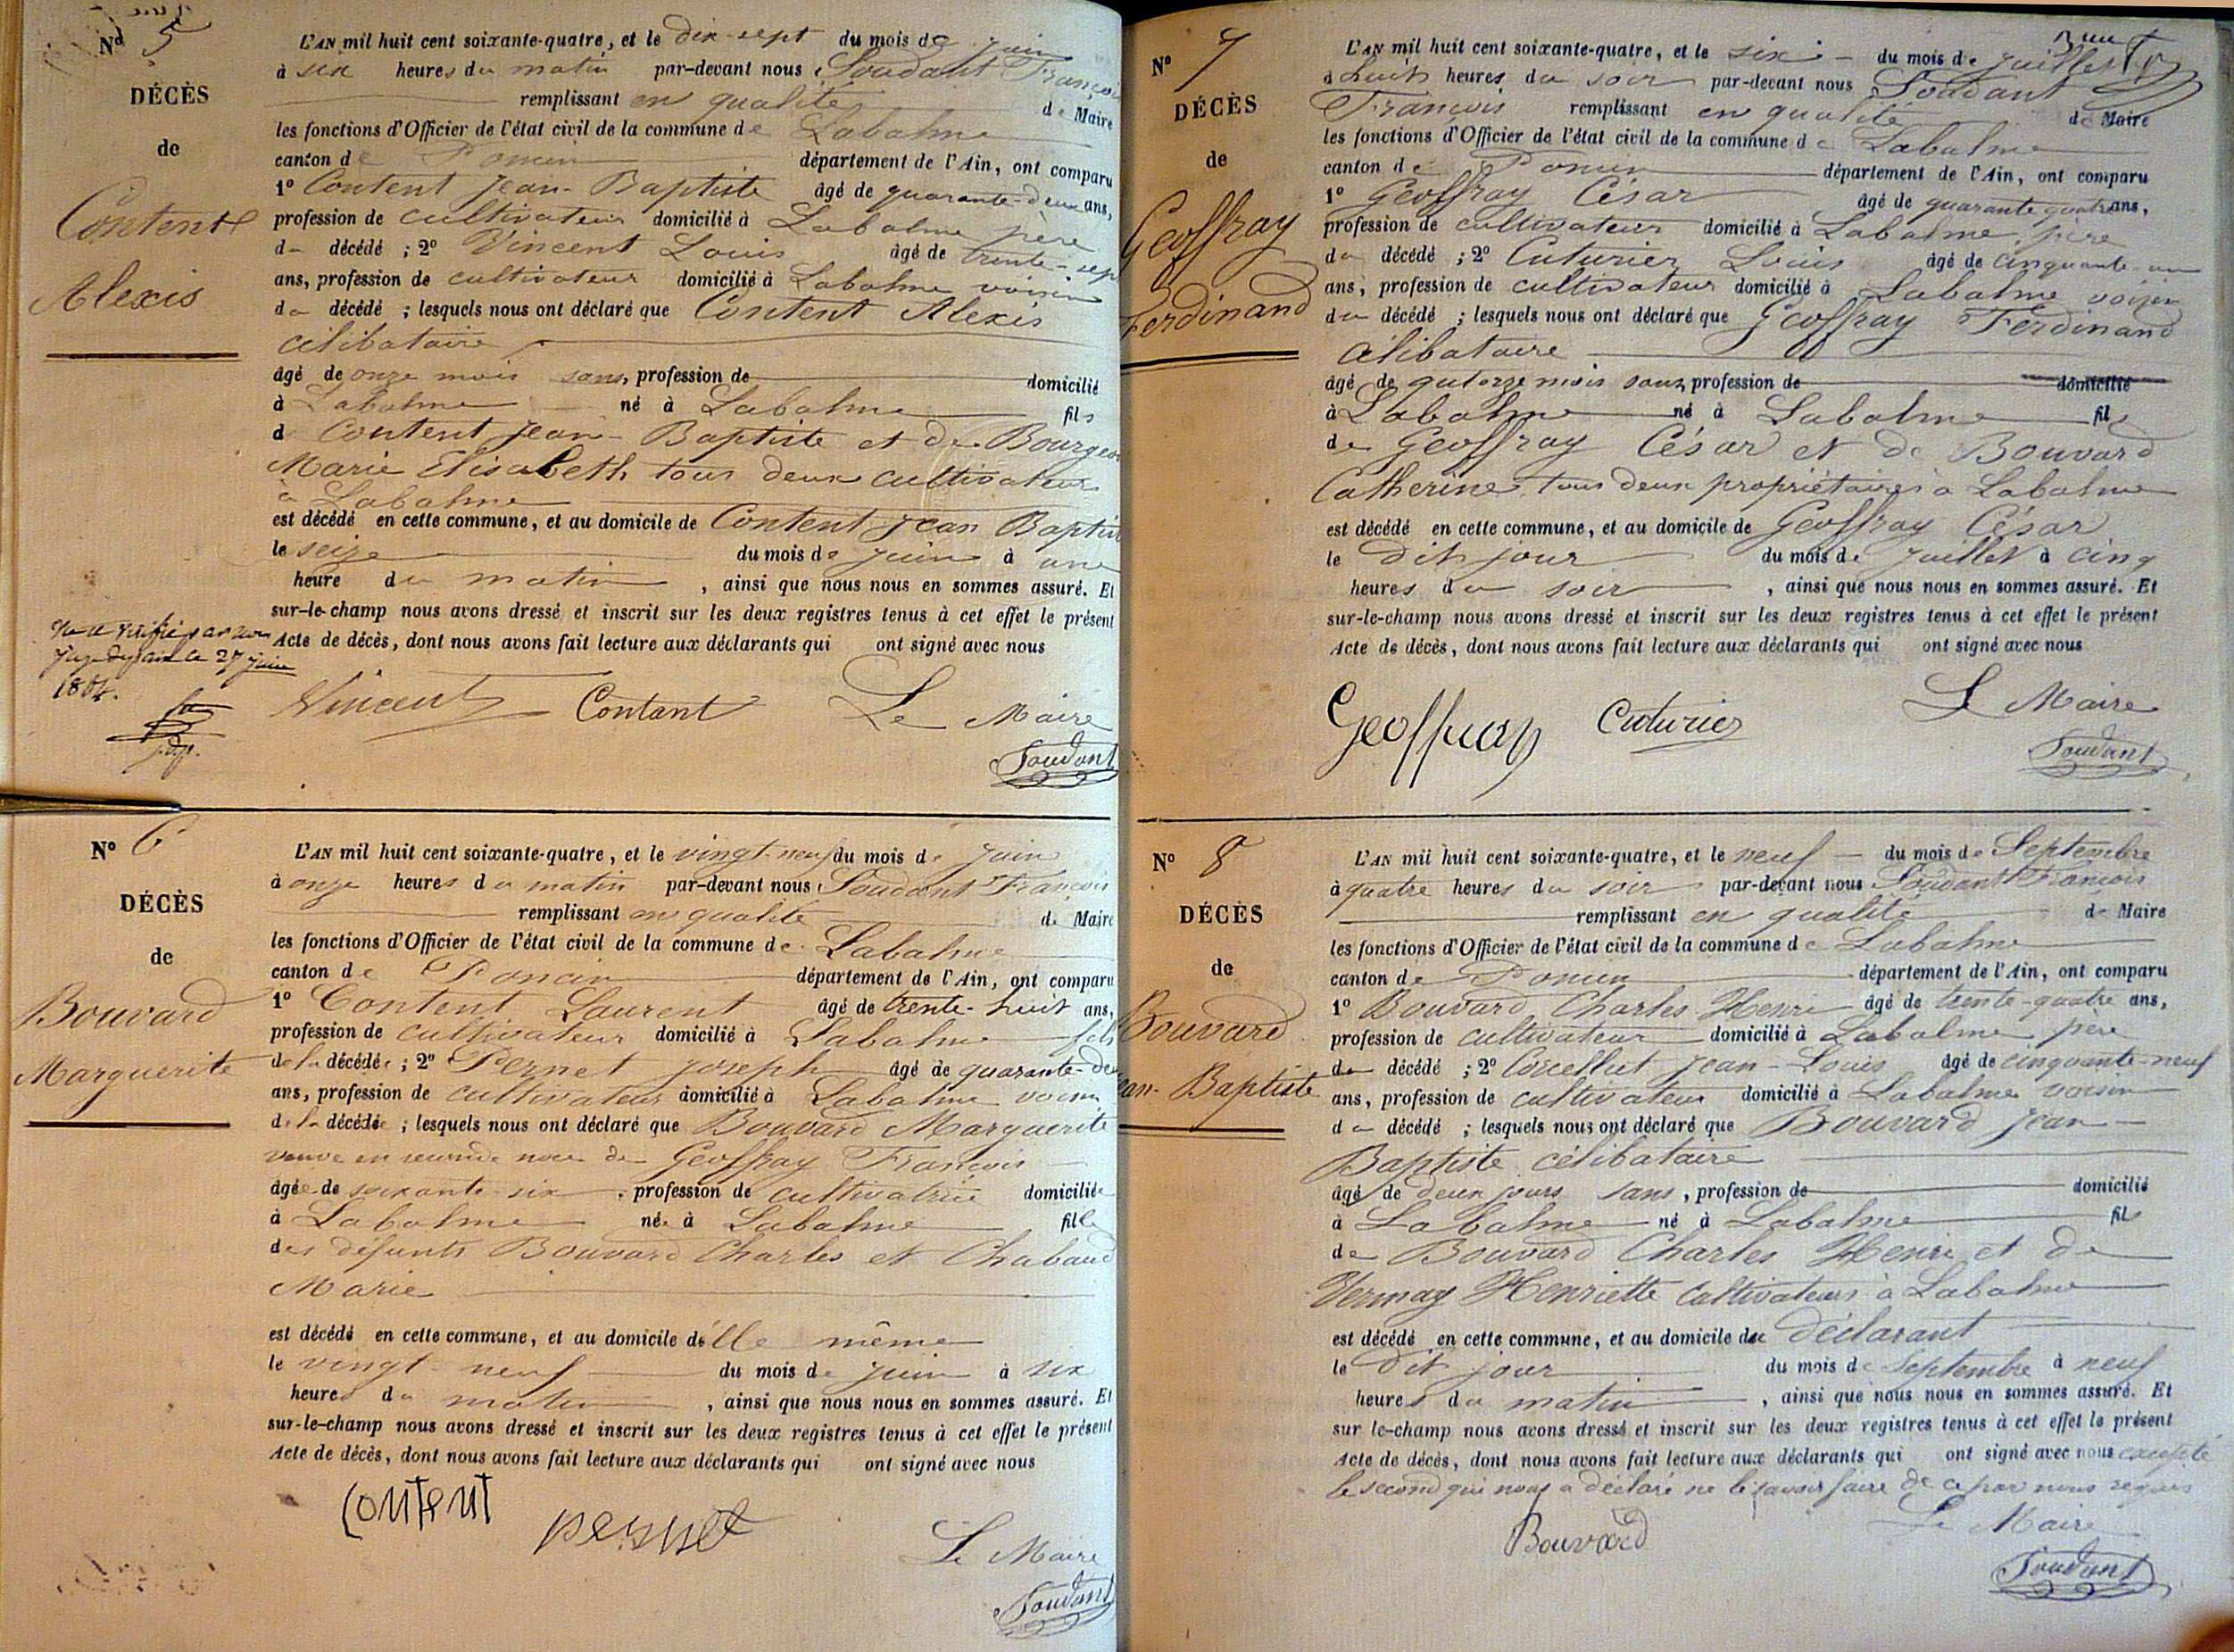 Nº 5
DÉCÈS
de
Content
Alexis
L'AN mil huit cent soixante-quatre, et le dix-sept du mois de juin
à six heures du matin par-devant nous Soudant François
remplissant en qualité de Maire
les fonctions d'Officier de l'état civil de la commune de Labalme
canton de Poncin département de l'Ain, ont comparu
1º Content Jean-Baptiste âgé de quarante-deux ans,
profession de cultivateur domicilié à Labalme père
du décédé ; 2º Vincent Louis âgé de trente-sept
ans, profession de cultivateur domicilié à Labalme voisin
du décédé ; lesquels nous ont déclaré que Content Alexis
célibataire
âgé de onze mois sans, profession de domicilié
à Labalme né à Labalme fils
d Content Jean-Baptiste et de Bourgeois
Marie Elisabeth tous deux cultivateurs
à Labalme
est décédé en cette commune, et au domicile de Content Jean Baptiste
le seize du mois de juin à une
heure du matin, ainsi que nous nous en sommes assuré. Et
sur-le-champ nous avons dressé et inscrit sur les deux registres tenus à cet effet le présent
Acte de décès, dont nous avons fait lecture aux déclarants qui ont signé avec nous
Vu et vérifié par nous
juge de paix le 27 juin
1864.
Vincent Contant Le Maire
Soudant
Nº 6
DÉCÈS
de
Bouvard
Marguerite
L'AN mil huit cent soixante-quatre, et le vingt-neuf du mois de juin
à onze heures du matin par-devant nous Soudant François
remplissant en qualité de Maire
les fonctions d'Officier de l'état civil de la commune de Labalme
canton de Poncin département de l'Ain, ont comparu
1º Content Laurent âgé de trente-huit ans,
profession de cultivateur domicilié à Labalme fils
de la décédée ; 2º Pernet Joseph âgé de quarante-de
ans, profession de cultivateur domicilié à Labalme voisin
de la décédée ; lesquels nous ont déclaré que Bouvard Marguerite
veuve en seconde noce de Geoffray François
âgée de soixante-six, profession de cultivatrice domiciliée
à Labalme née à Labalme fille
des défunts Bouvard Charles et Chabaud
Marie
est décédé en cette commune, et au domicile d'elle même
le vingt-neuf du mois de juin à six
heures du matin, ainsi que nous nous en sommes assuré. Et
sur-le-champ nous avons dressé et inscrit sur les deux registres tenus à cet effet le présent
Acte de décès, dont nous avons fait lecture aux déclarants qui ont signé avec nous
Content pernet Le Maire
Soudant
Nº 7
DÉCÈS
de
Geoffray
Ferdinand
L'AN mil huit cent soixante-quatre, et le six du mois de juillet
à huit heures du soir par-devant nous Soudant
François remplissant en qualité de Maire
les fonctions d'Officier de l'état civil de la commune de Labalme
canton de Poncin département de l'Ain, ont comparu
1º Geoffray César âgé de quarante quatre ans,
profession de cultivateur domicilié à Labalme père
du décédé ; 2º Cuturier Louis âgé de cinquante-un
ans, profession de cultivateur domicilié à Labalme voisin
du décédé ; lesquels nous ont déclaré que Geoffray Ferdinand
célibataire
âgé de qutorze mois sans, profession de domicilié
à Labalme né à Labalme fils
de Geoffray César et de Bouvard
Catherine tous deux propriétaires à Labalme
est décédé en cette commune, et au domicile de Geoffray César
le dit jour du mois de juillet à cinq
heures du soir, ainsi que nous nous en sommes assuré. Et
sur-le-champ nous avons dressé et inscrit sur les deux registres tenus à cet effet le présent
Acte de décès, dont nous avons fait lecture aux déclarants qui ont signé avec nous
Geoffray Cuturier Le Maire
Soudant
Nº 8
DÉCÈS
de
Bouvard
ean-Baptiste
L'AN mil huit cent soixante-quatre, et le neuf du mois de Septembre
à quatre heures du soir par-devant nous Soudant François
remplissant en qualité de Maire
les fonctions d'Officier de l'état civil de la commune de Labalme
canton de Poncin département de l'Ain, ont comparu
1º Bouvard Charles Henri âgé de trente-quatre ans,
profession de cultivateur domicilié à Labalme père
du décédé ; 2º Corcellut Jean-Louis âgé de cinquante-neuf
ans, profession de cultivateur domicilié à Labalme voisin
du décédé ; lesquels nous ont déclaré que Bouvard Jean-
Baptiste célibataire
âgé de deux jours sans, profession de domicilié
à Labalme né à Labalme fils
de Bouvard Charles Henri et de
Vernay Henriette cultivateurs à Labalme
est décédé en cette commune, et au domicile du déclarant
le dit jour du mois de Septembre à neuf
heures du matin, ainsi que nous nous en sommes assuré. Et
sur-le-champ nous avons dressé et inscrit sur les deux registres tenus à cet effet le présent
Acte de décès, dont nous avons fait lecture aux déclarants qui ont signé avec nous excepté
le second qui nous a déclaré ne le savoir faire de ce par nous requis
Bouvard Le Maire
Soudant